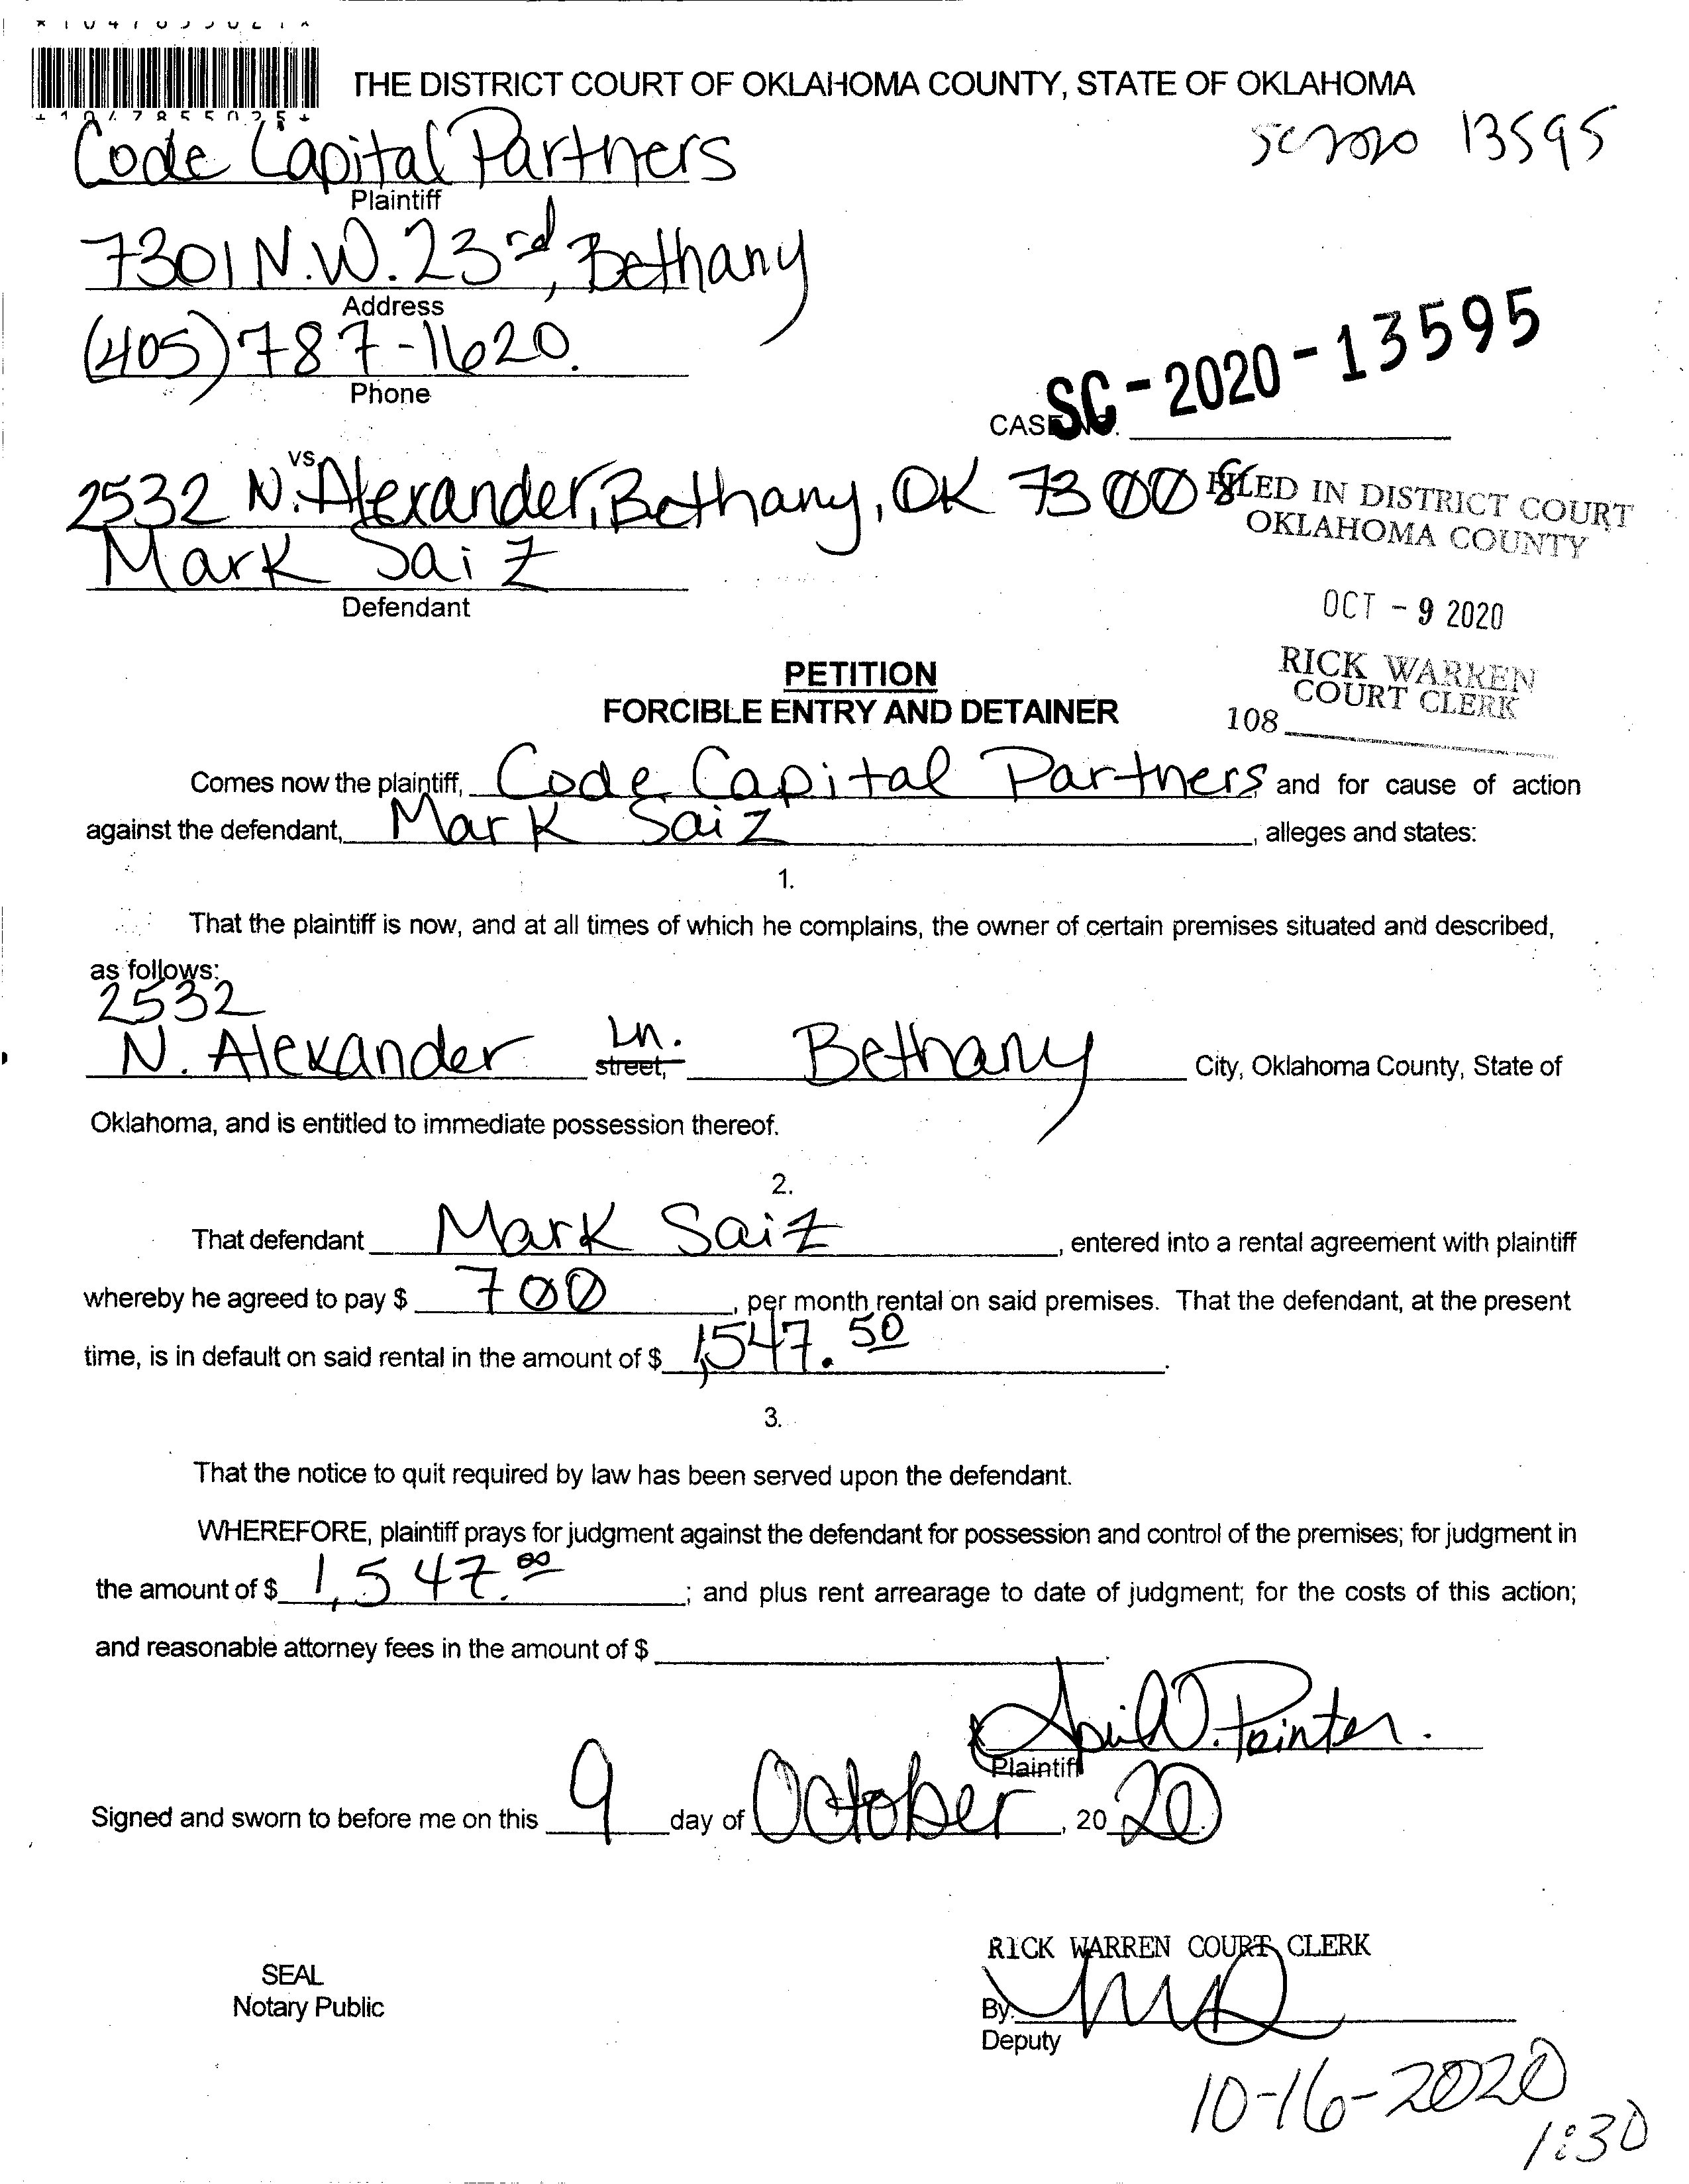 THE DISTRICT COURT OF OKLAHOMA COUNTY, STATE OF OKLAHOMA
Code Capital Partners
SC2020 13595
Plaintiff
7301 N.W. 23rd, Bethany
Address
(405) 787-1620.
Phone
CASE NO. SC-2020-13595
vs.
2532 N. Alexander, Bethany, OK 73008
Mark Saiz
Defendant
FILED IN DISTRICT COURT
OKLAHOMA COUNTY
OCT - 9 2020
RICK WARREN
COURT CLERK
108
PETITION
FORCIBLE ENTRY AND DETAINER
Comes now the plaintiff, Code Capital Partners and for cause of action
against the defendant, Mark Saiz, alleges and states:
1.
That the plaintiff is now, and at all times of which he complains, the owner of certain premises situated and described,
as follows:
2532
N. Alexander Ln. street, Bethany City, Oklahoma County, State of
Oklahoma, and is entitled to immediate possession thereof.
2.
That defendant Mark Saiz, entered into a rental agreement with plaintiff
whereby he agreed to pay $ 700, per month rental on said premises. That the defendant, at the present
time, is in default on said rental in the amount of $ 1,547.50.
3.
That the notice to quit required by law has been served upon the defendant.
WHEREFORE, plaintiff prays for judgment against the defendant for possession and control of the premises; for judgment in
the amount of $ 1,547.00; and plus rent arrearage to date of judgment; for the costs of this action;
and reasonable attorney fees in the amount of $ .
April D. Painter.
Plaintiff
Signed and sworn to before me on this 9 day of October, 20 20.
RICK WARREN COURT CLERK
SEAL
Notary Public
By:
Deputy
10-16-2020
1:30